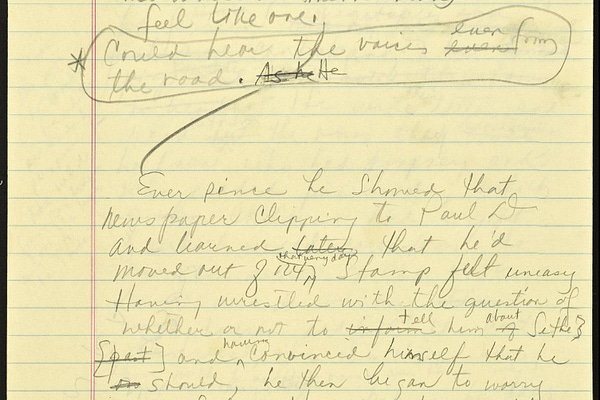 feel like one.
* Could hear the voices even even from
the road. As he He
Ever since he showed that
newspaper clipping to Paul D
and learned later that he'd
moved out of 124 that very day Stamp felt uneasy
Having wrestled with the question of
whether or not to inform tell him of about Sethe's
[past] and having convinced himself that he
should, he then began to worry